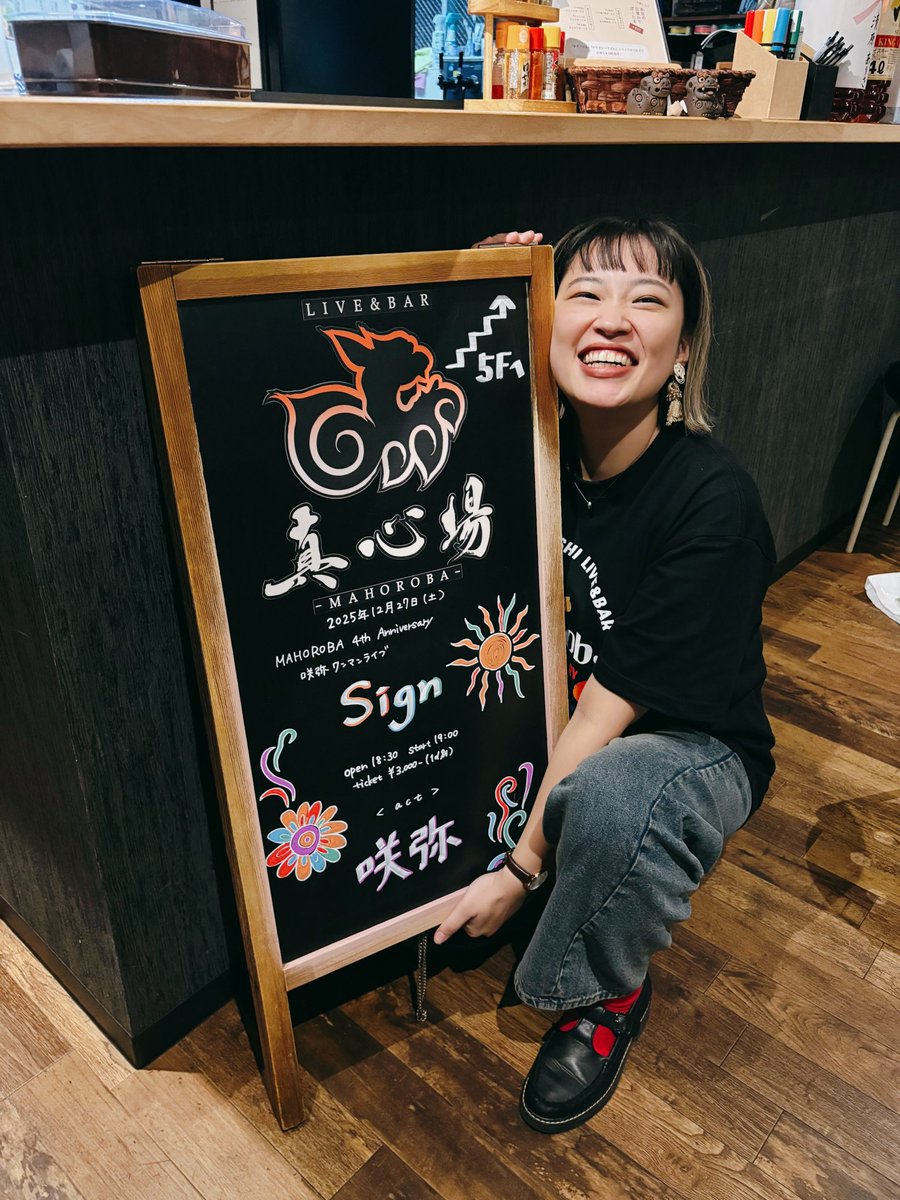 LIVE&BAR
5F
真心場
-MAHOROBA-
2025年12月27日(土)
MAHOROBA 4th Anniversary
咲弥 ワンマンライブ
Sign
open 18:30 start 19:00
ticket ¥3,000-(1d別)
<act>
咲弥
SHI LIVE&BAR
KING